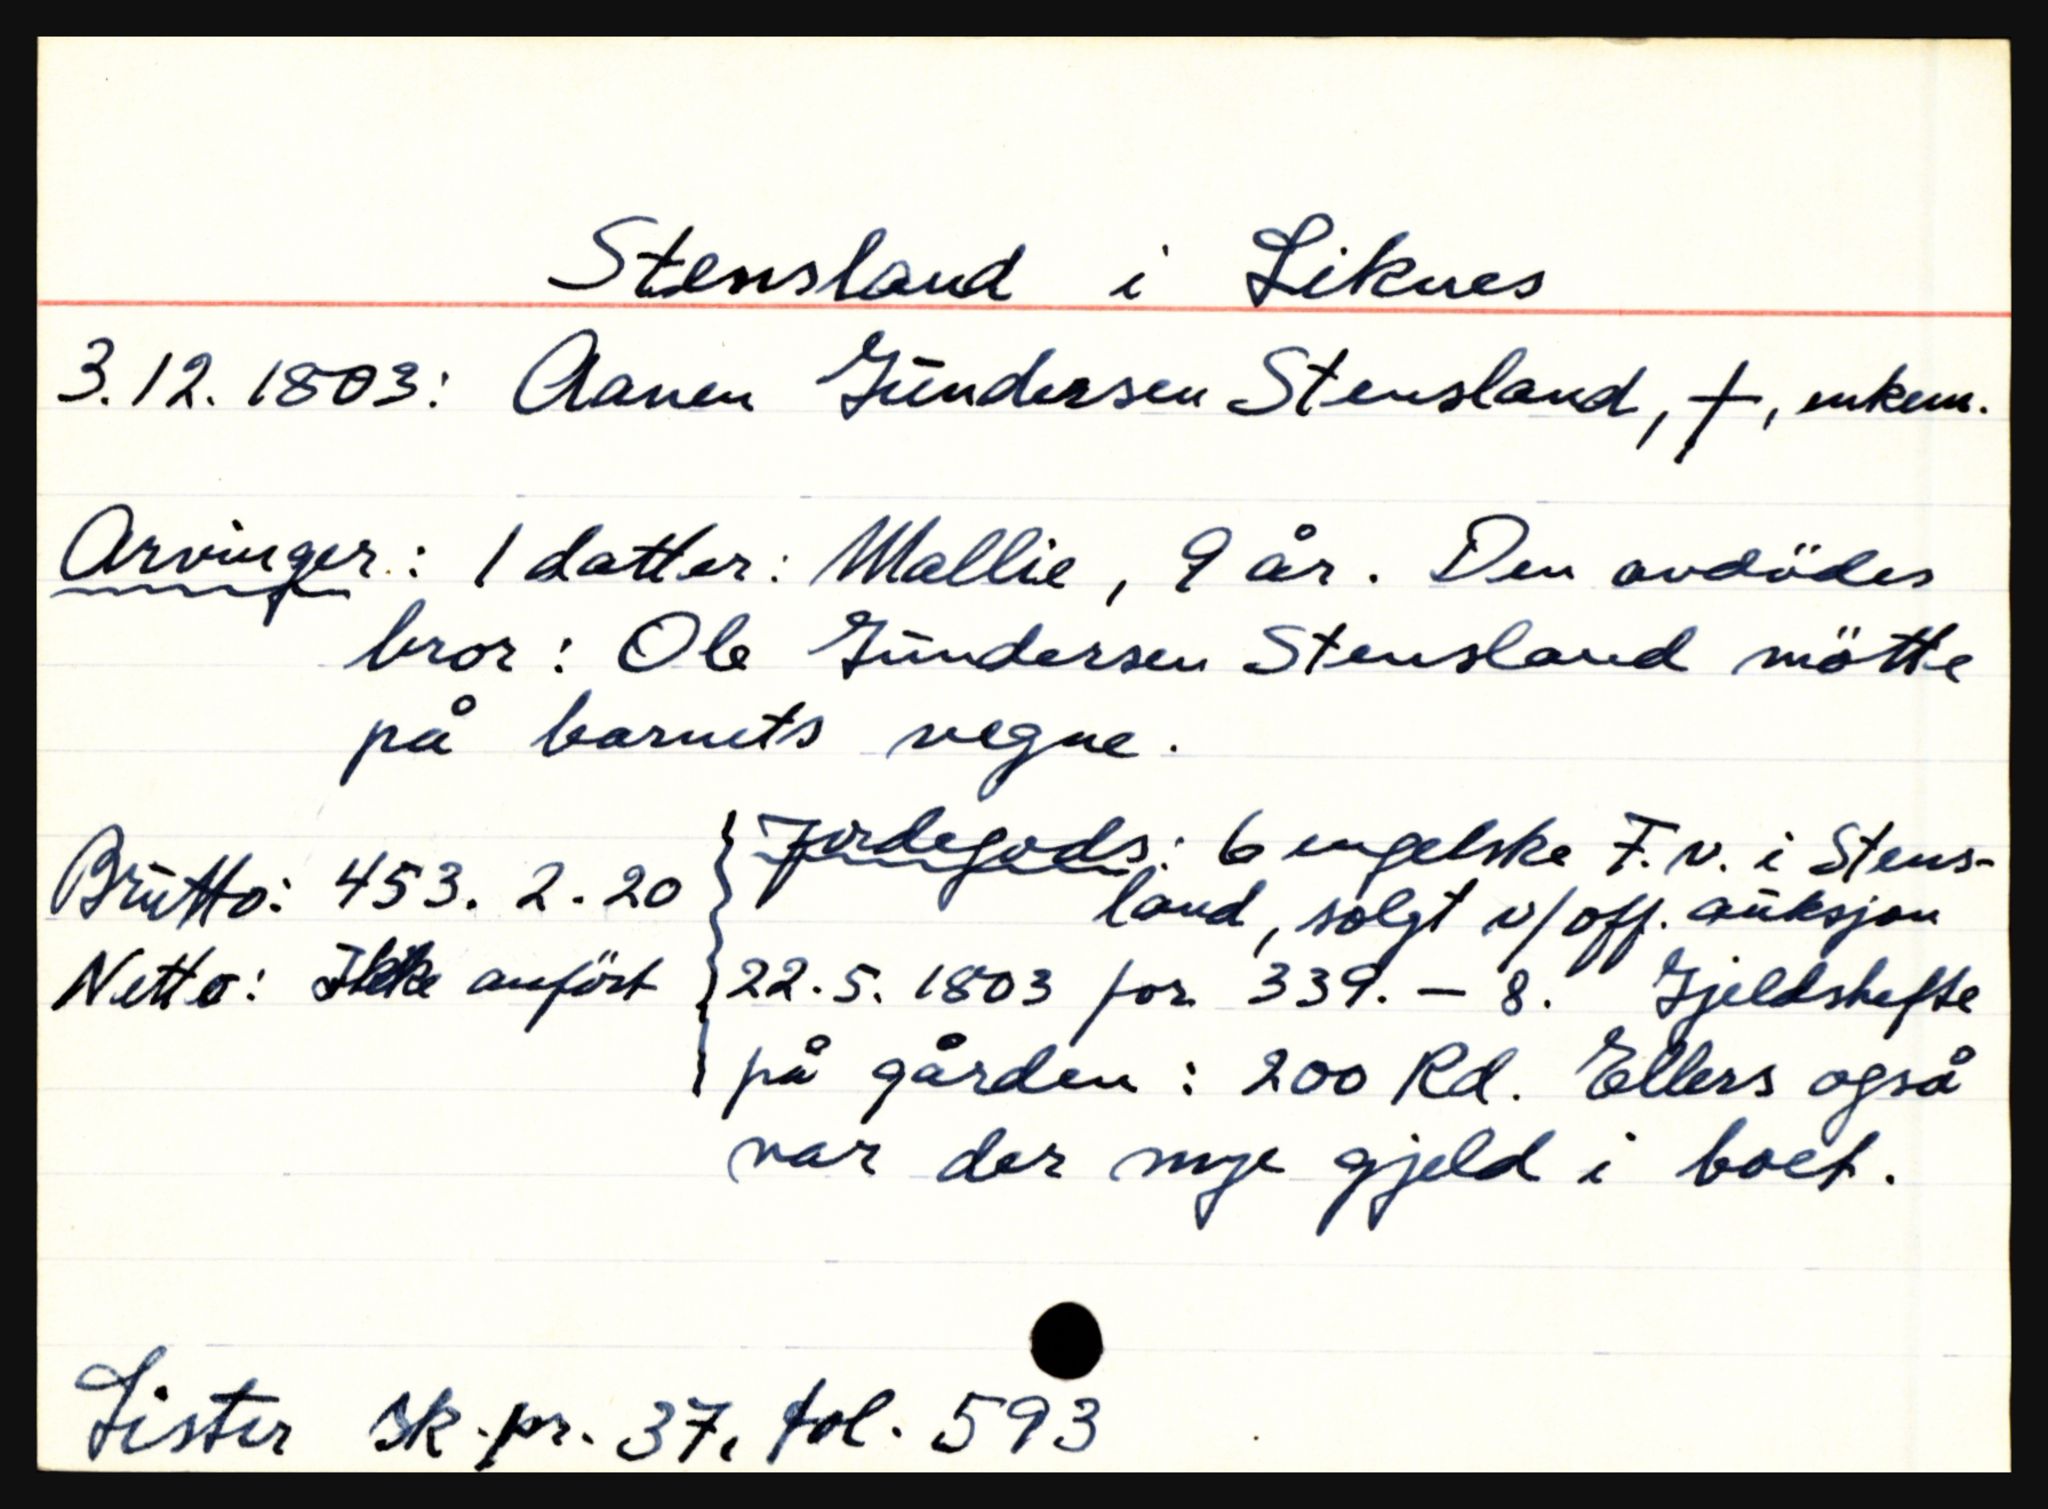 Stensland i Liknes
3.12.1803: Aanen Gundersen Stensland, †, enkem.
Arvinger: 1 datter: Mallie, 9 år. Den avdödes
bror: Ole Gundersen Stensland mötte
på barnets vegne.
Brutto: 453. 2. 20
Netto: Ikke anfört
Jordegods: 6 engelske F. v. i Stens-
land, solgt v/ off. auksjon
22.5.1803 for 339. – 8. Gjeldshefte
på gården: 200 Rd. Ellers også
var der mye gjeld i boet.
Lister sk.pr. 37, fol. 593